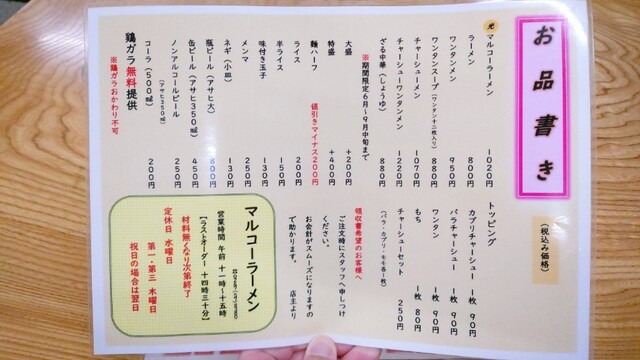 お品書き
(税込み価格)
マルコーラーメン 1020円
ラーメン 800円
ワンタンメン 950円
ワンタンスープ(ワンタン十二枚入り) 880円
チャーシューメン 1070円
チャーシューワンタンメン 1220円
ざる中華(しょうゆ) 880円
※期間限定6月~9月中旬まで
大盛 +200円
特盛 +400円
麺ハーフ 値引きマイナス200円
ライス 200円
半ライス 150円
味付き玉子 130円
メンマ 250円
ネギ(小皿) 130円
瓶ビール(アサヒ大) 800円
缶ビール(アサヒ350㎖) 450円
ノンアルコールビール 250円
(アサヒ350㎖)
コーラ(500㎖) 200円
鶏ガラ無料提供
※鶏ガラおかわり不可
トッピング
カブリチャーシュー 1枚 90円
バラチャーシュー 1枚 90円
ワンタン 1枚 90円
もち 1枚 80円
チャーシューセット 250円
(バラ・カブリ・モモ各1枚)
領収書希望のお客様へ
ご注文時にスタッフへ申しつけ
ください。
お会計がスムーズになりますの
で助かります。 店主より
マルコーラーメン
営業時間 午前 十一時~十五時
【ラストオーダー 十四時三十分】
材料無くなり次第終了
定休日 水曜日
第一・第三 木曜日
祝日の場合は翌日